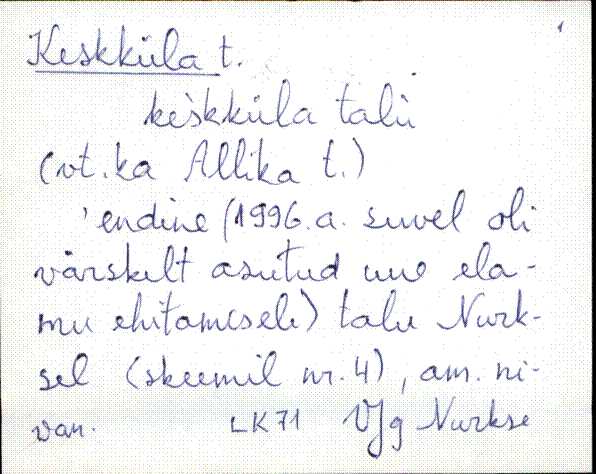 Keskküla t.
keskküla talu
(vt. ka Allika t.)
'endine (1996. a. suvel oli
värskelt asutud uue ela-
mu ehitamisele) talu Nurk-
sel (skeemil nr. 4), am. ni-
van. LK71 VJg Nurkse